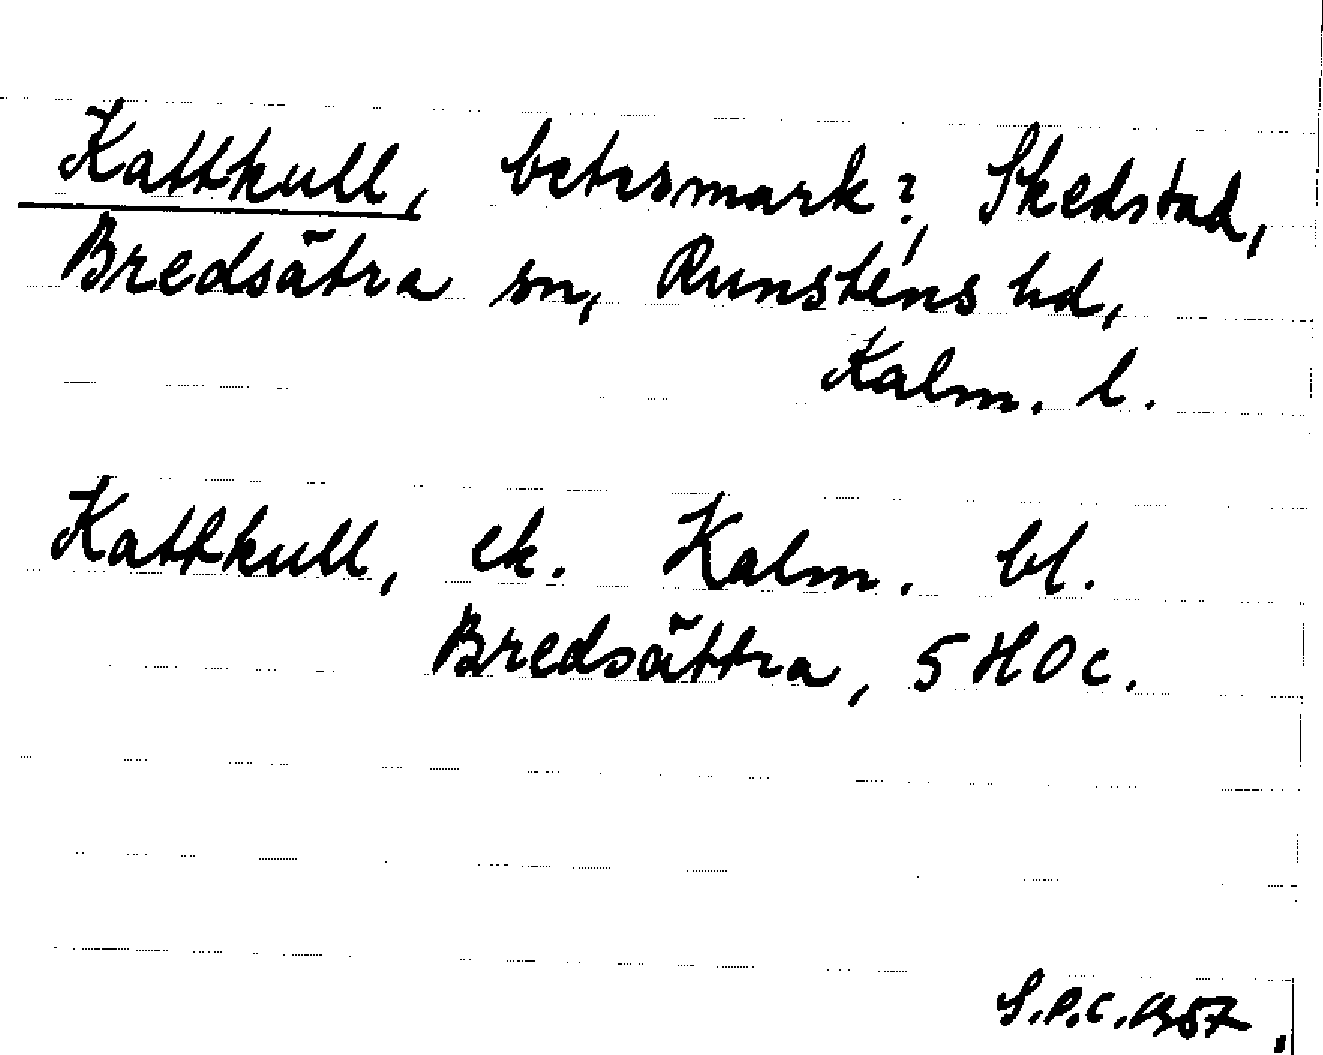 Kattkull, betesmark?, Skedstad,
Bredsätra sn, Runstens hd,
Kalm. l.
Kattkull, ek. Kalm. bl.
Bredsättra, 5 H0c.
S.P.C. 1957